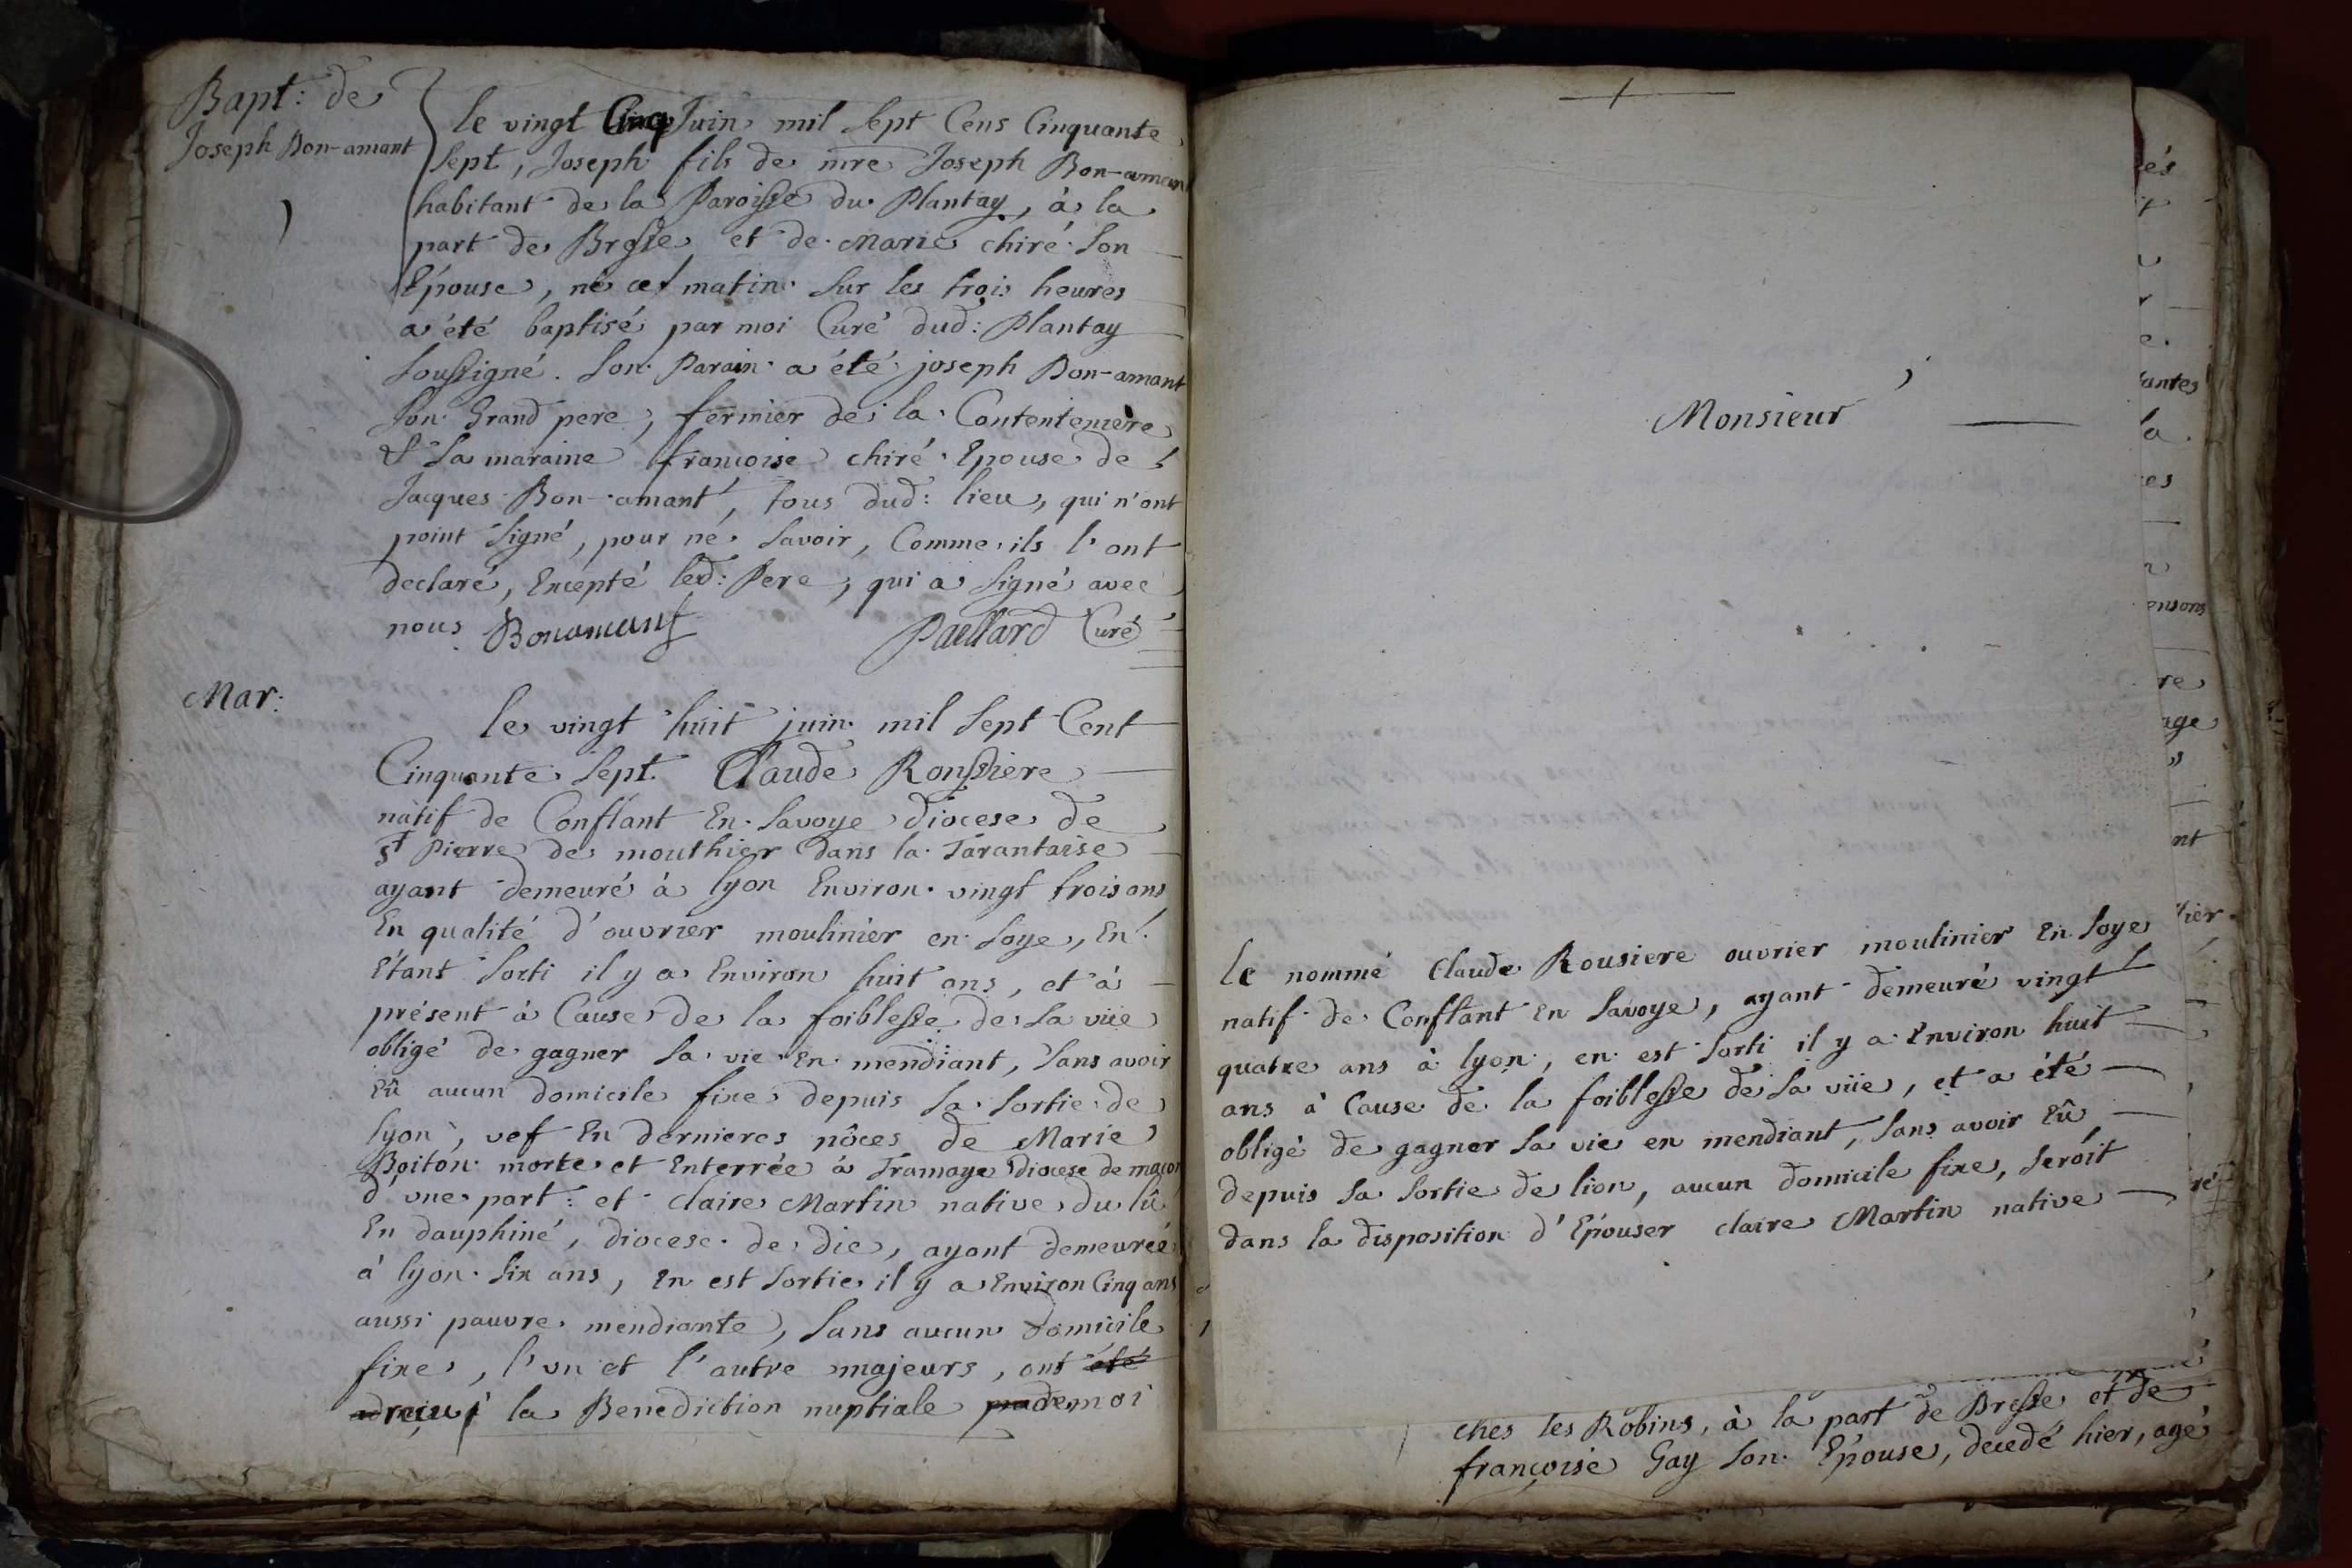 Bapt: de
Joseph Bon-amant
le vingt Cinq Juin mil sept Cens Cinquante
sept, Joseph fils de mre Joseph Bon-amant
habitant de la Paroisse du Plantay, à la
part de Bresse, et de Marie chiré son
Epouse, né cet matin sur les trois heures
a été baptisé par moi Curé dud: Plantay
soussigné. son Parain a été joseph Bon-amant
son Grand pere, fermier de la Contenteniere
& sa maraine françoise chiré Epouse de
Jacques Bon-amant, tous dud: lieu, qui n'ont
point signé, pour né savoir, Comme ils l'ont
declaré, Excepté led: Pere, qui a signé avec
nous Bonamant Paillard Curé
Mar:
le vingt huit juin mil sept Cent
Cinquante sept. Claude Roussiere
natif de Conflant En Savoye Diocese de
St Pierre de mouthier dans la Tarantaise
ayant demeuré à lyon Environ vingt trois ans
En qualité d'ouvrier moulinier en soye, En
Etant sorti il y a Environ huit ans, et à
présent à Cause de la foiblesse de sa vüe
obligé de gagner sa vie En mendiant, sans avoir
Eû aucun domicile fixe depuis sa sortie de
lyon, vef En dernieres nôces de Marie
Boiton morte et Enterrée à Tramaye Diocese de macon
d'une part: et claire Martin native du lû
En dauphiné, diocese de die, ayant demeurée
à lyon six ans, En est sortie il y a Environ Cinq ans
aussi pauvre mendiante, sans aucun domicile
fixe, l'un et l'autre majeurs, ont été
reçu la Benediction nuptiale de moi
Monsieur
le nommé Claude Rousiere ouvrier moulinier En soye
natif de Conflant En Savoye, ayant demeuré vingt
quatre ans à lyon, en est sorti il y a Environ huit
ans à Cause de la foiblesse de sa vüe, et a été
obligé de gagner sa vie en mendiant, sans avoir Eû
depuis sa sortie de lion, aucun domicile fixe, seroit
dans la disposition d'Epouser claire Martin native
ches les Robins, à la part de Bresse et de
françoise Gay son Epouse, decedé hier, agé